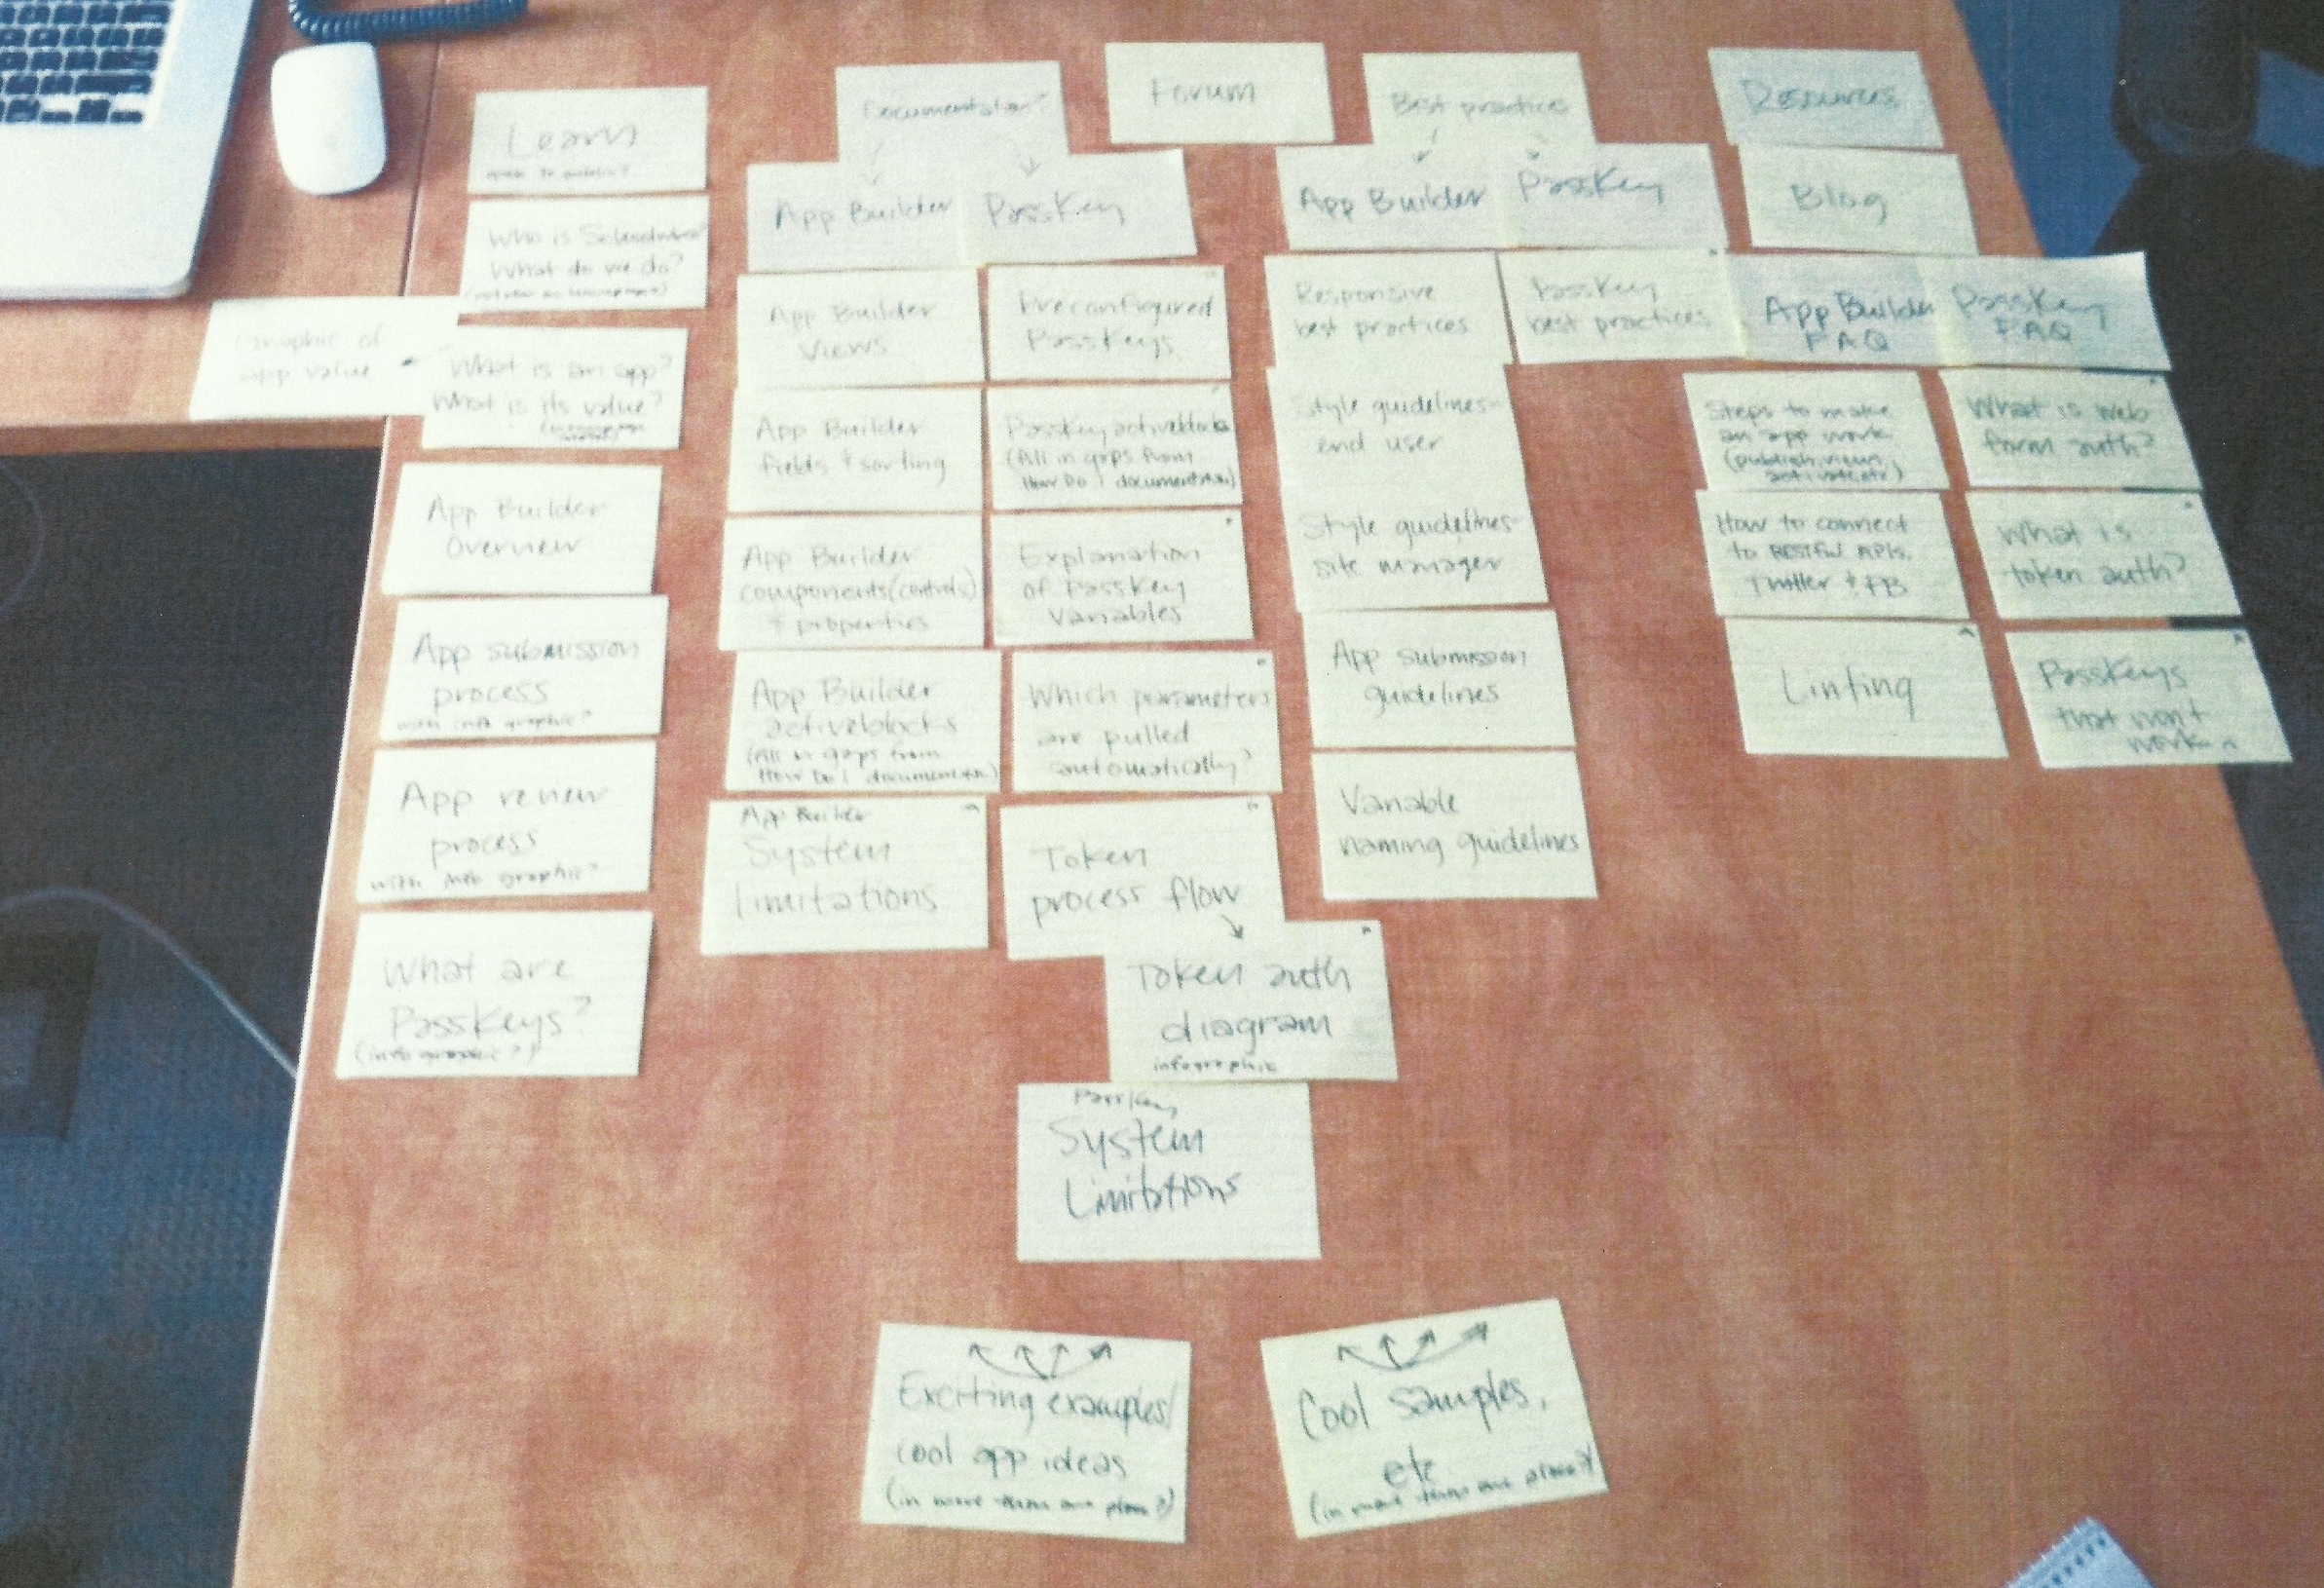 Learn
open to public?
Who is Schoolwires?
What do we do?
Graphic of
app value
What is an app?
What is its value?
App Builder
Overview
App submission
process
with info graphic?
App review
process
with info graphic?
What are
PassKeys?
(info graphic?)
Documentation?
App Builder
PassKey
App Builder
Views
App Builder
fields + sorting
App Builder
components (controls)
+ properties
App Builder
activeblocks
(fill in gaps from
How Do I documentation)
App Builder
System
limitations
Preconfigured
PassKeys
PassKey activeblocks
(fill in gaps from
How Do I documentation)
Explanation
of PassKey
Variables
Which parameters
are pulled
automatically?
Token
process flow
Token auth
diagram
infographic
PassKey
System
Limitations
Forum
Best practices
App Builder
PassKey
Responsive
best practices
PassKey
best practices
Style guidelines-
end user
Style guidelines-
site manager
App submission
guidelines
Variable
naming guidelines
Resources
Blog
App Builder
FAQ
PassKey
FAQ
Steps to make
an app work
(publish, views,
activate, etc)
How to connect
to RESTful APIs.
Twitter + FB
Linting
What is web
form auth?
What is
token auth?
PassKeys
that won't
work
Exciting examples/
cool app ideas
(in more than one place?)
Cool samples,
etc
(in more than one place?)